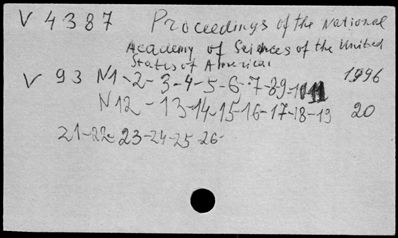 V 4387 Proceedings of the National
Academy of Sciences of the United
States of America
V 93 N1-2-3-4-5-6-7-8-9-10-11 1996
N12-13-14-15-16-17-18-19 20
21-22-23-24-25-26-